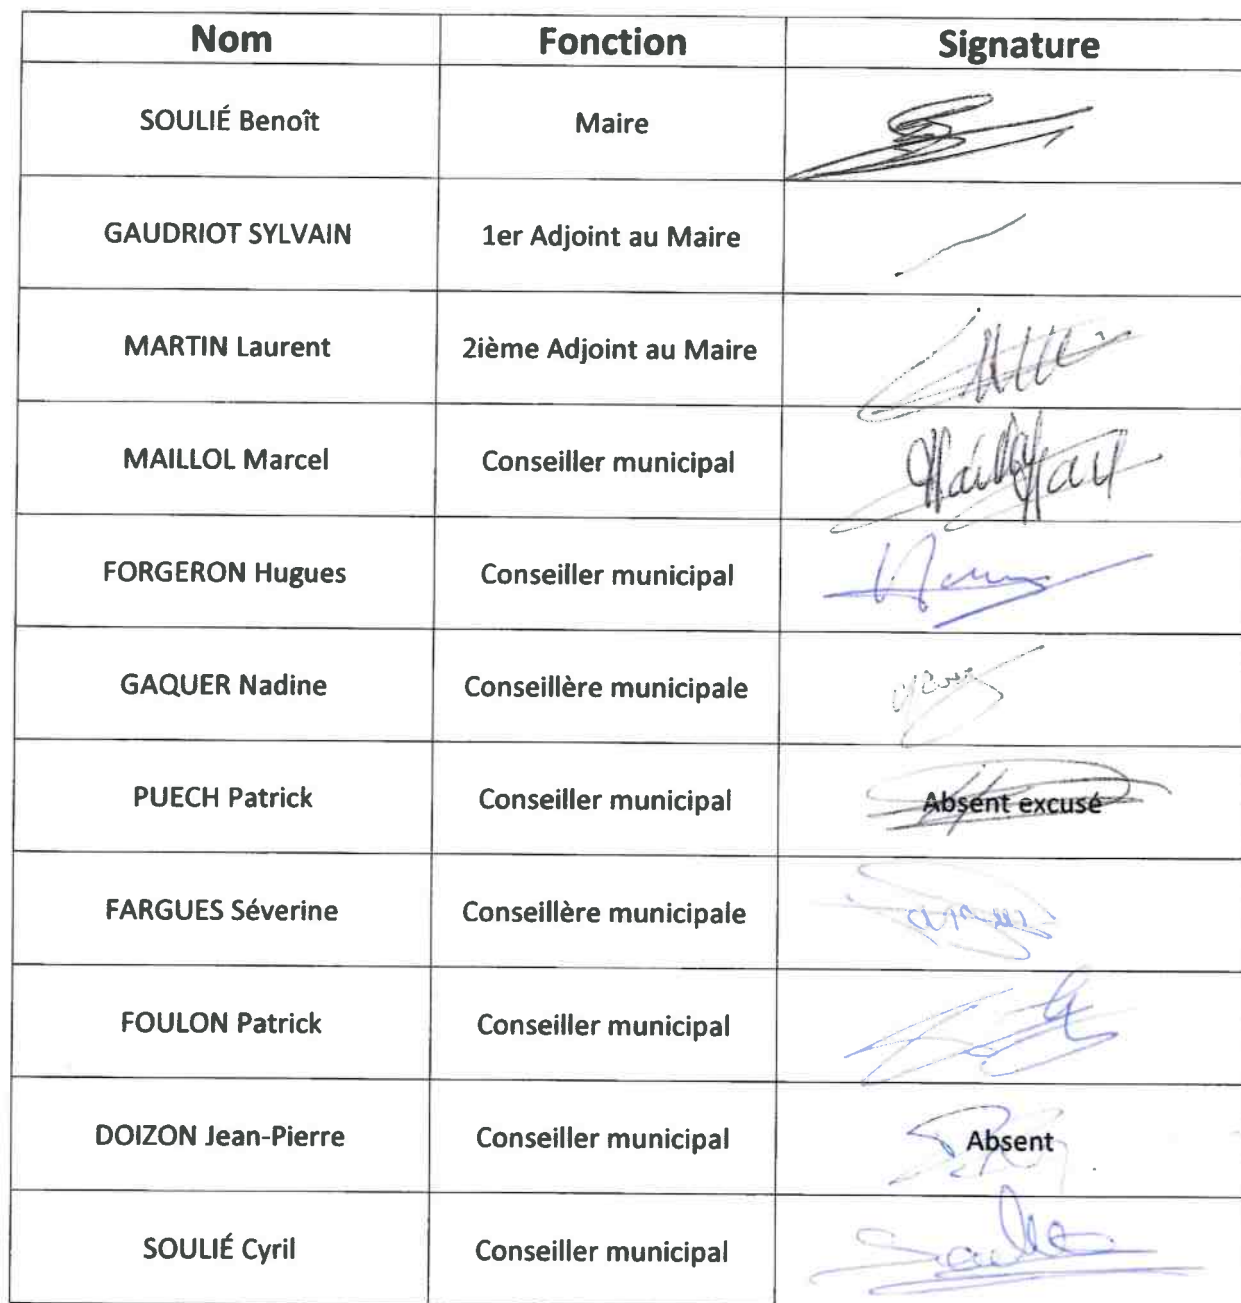 Nom Fonction Signature
SOULIÉ Benoît Maire
GAUDRIOT SYLVAIN 1er Adjoint au Maire
MARTIN Laurent 2ième Adjoint au Maire
MAILLOL Marcel Conseiller municipal
FORGERON Hugues Conseiller municipal
GAQUER Nadine Conseillère municipale
PUECH Patrick Conseiller municipal Absent excusé
FARGUES Séverine Conseillère municipale
FOULON Patrick Conseiller municipal
DOIZON Jean-Pierre Conseiller municipal Absent
SOULIÉ Cyril Conseiller municipal